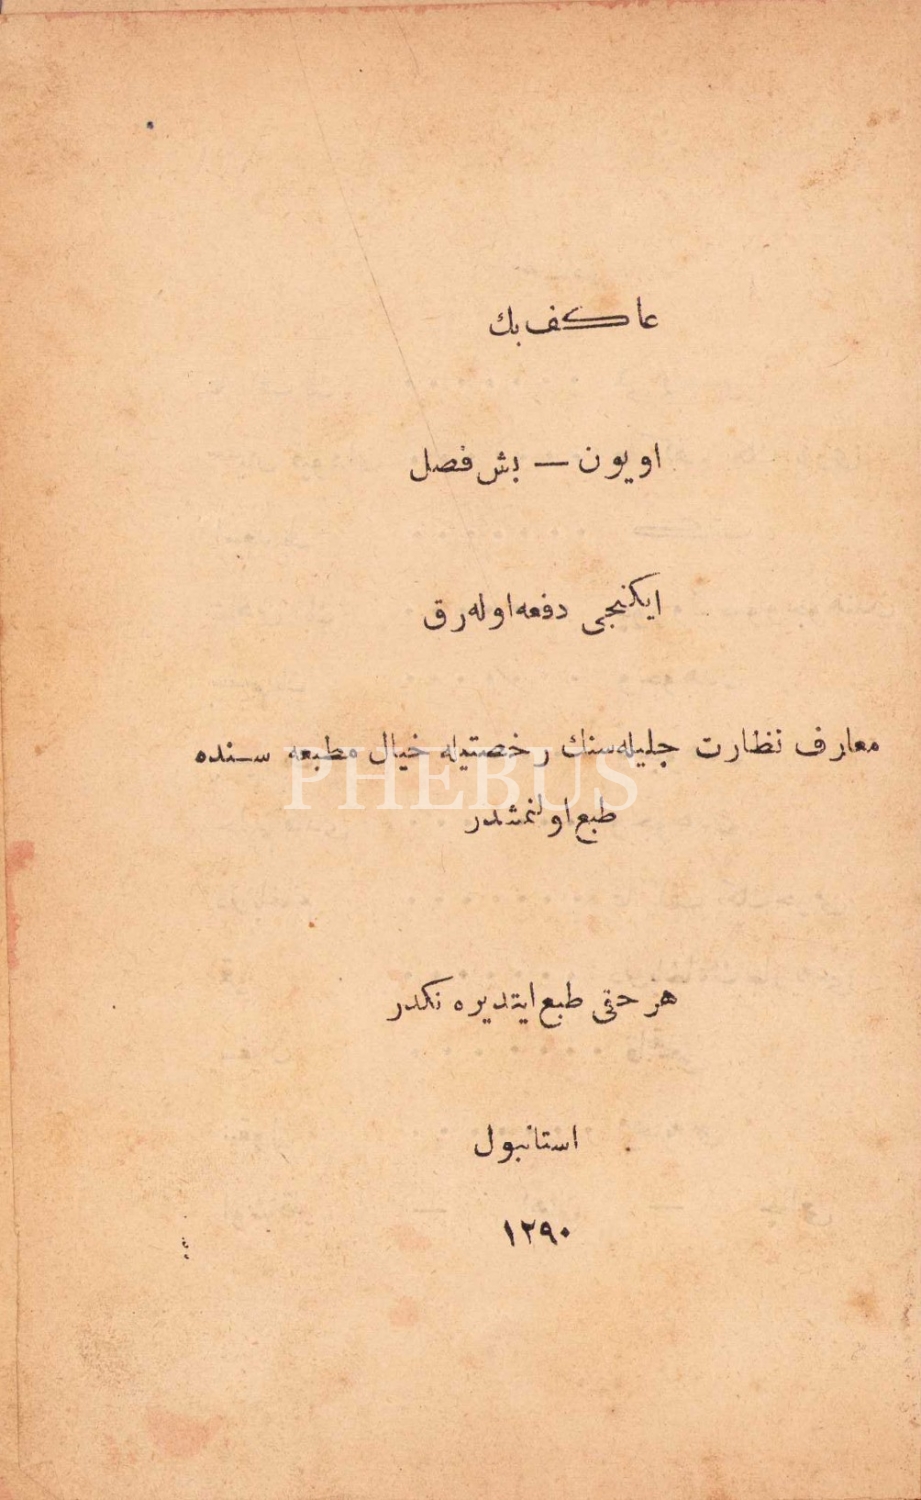 عاكف بك
اويون — بش فصل
ايكنجى دفعه اوله رق
معارف نظارت جليله سنك رخصتيله خيال مطبعه سنده
PHEBUS
طبع اولنمشدر
هر حقى طبع ايتديره نكدر
استانبول
١٢٩٠